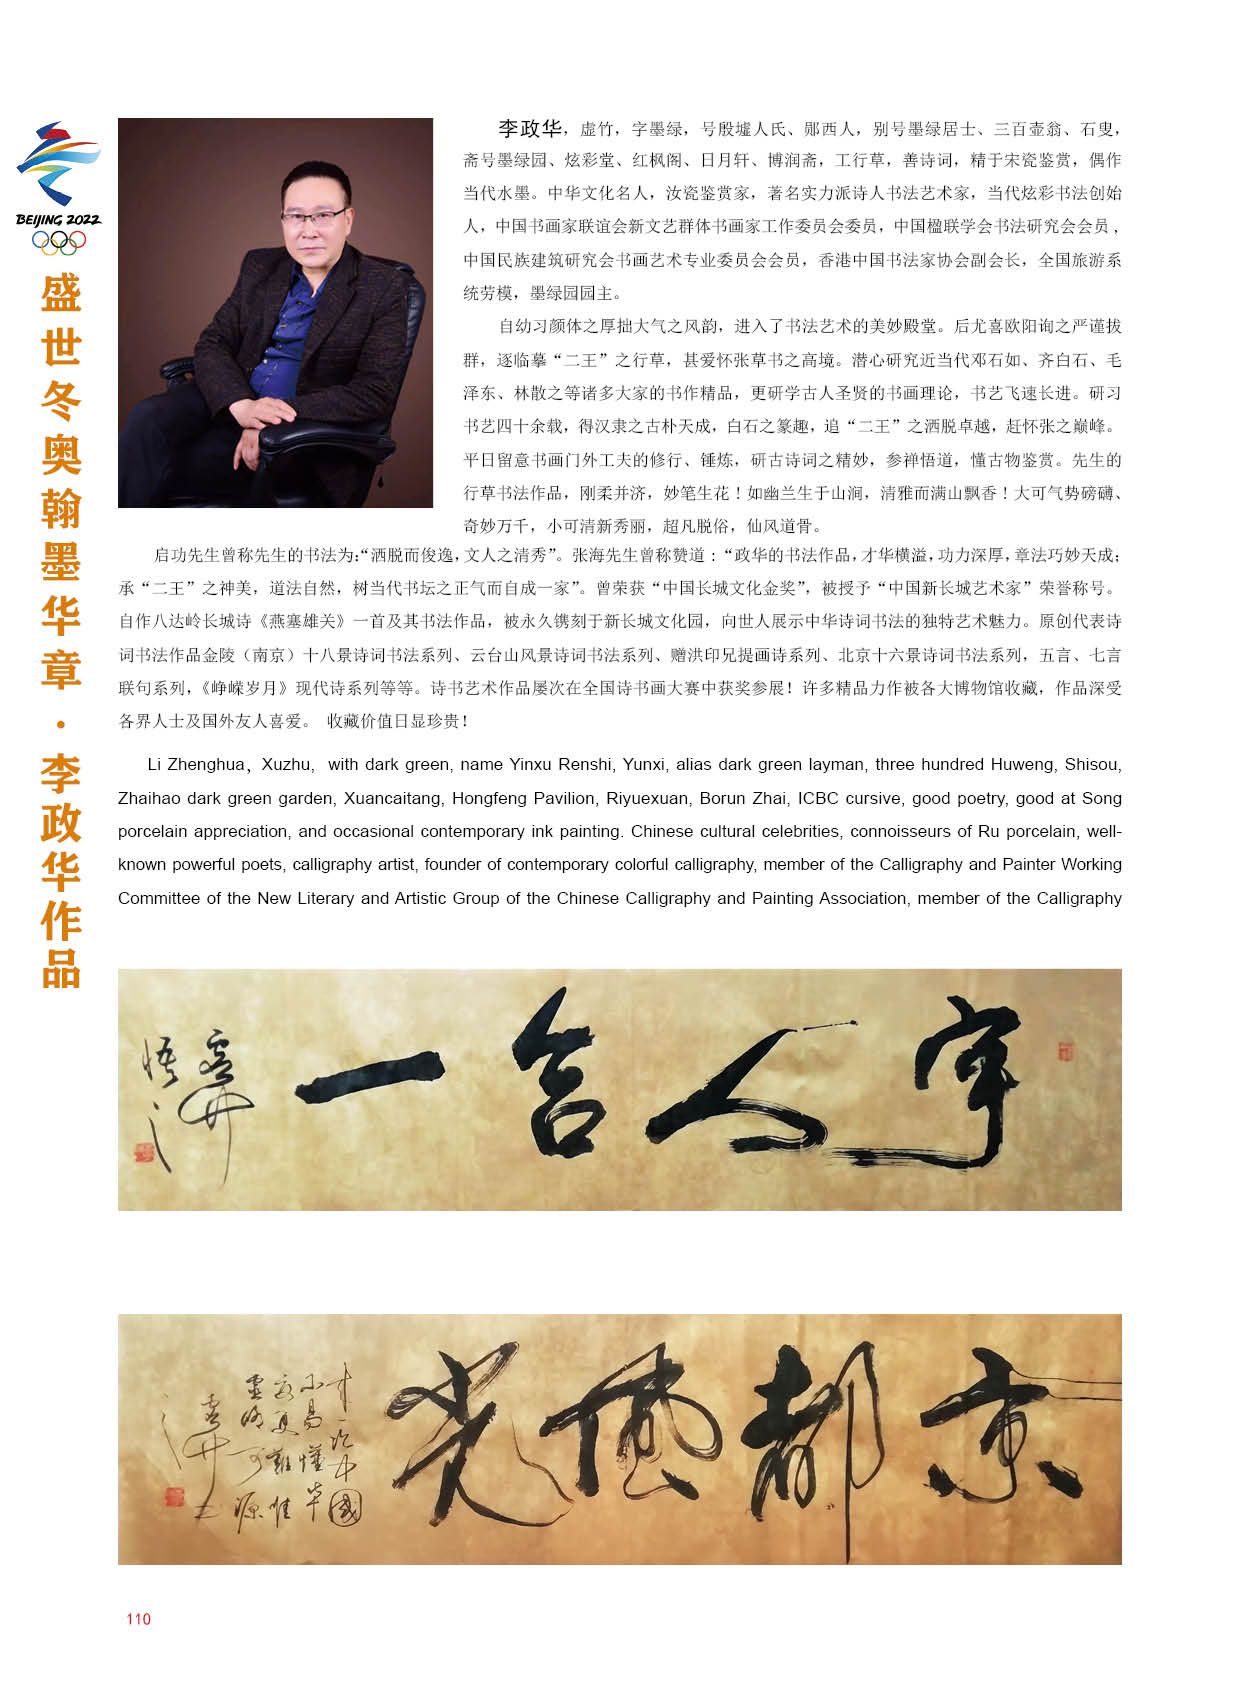 BEIJING 2022
盛世冬奥翰墨华章·李政华作品
李政华，虚竹，字墨绿，号殷墟人氏、郧西人，别号墨绿居士、三百壶翁、石叟，
斋号墨绿园、炫彩堂、红枫阁、日月轩、博润斋，工行草，善诗词，精于宋瓷鉴赏，偶作
当代水墨。中华文化名人，汝瓷鉴赏家，著名实力派诗人书法艺术家，当代炫彩书法创始
人，中国书画家联谊会新文艺群体书画家工作委员会委员，中国楹联学会书法研究会会员，
中国民族建筑研究会书画艺术专业委员会会员，香港中国书法家协会副会长，全国旅游系
统劳模，墨绿园园主。
自幼习颜体之厚拙大气之风韵，进入了书法艺术的美妙殿堂。后尤喜欧阳询之严谨拔
群，逐临摹“二王”之行草，甚爱怀张草书之高境。潜心研究近当代邓石如、齐白石、毛
泽东、林散之等诸多大家的书作精品，更研学古人圣贤的书画理论，书艺飞速长进。研习
书艺四十余载，得汉隶之古朴天成，白石之篆趣，追“二王”之洒脱卓越，赶怀张之巅峰。
平日留意书画门外工夫的修行、锤炼，研古诗词之精妙，参禅悟道，懂古物鉴赏。先生的
行草书法作品，刚柔并济，妙笔生花！如幽兰生于山涧，清雅而满山飘香！大可气势磅礴、
奇妙万千，小可清新秀丽，超凡脱俗，仙风道骨。
启功先生曾称先生的书法为：“洒脱而俊逸，文人之清秀”。张海先生曾称赞道：“政华的书法作品，才华横溢，功力深厚，章法巧妙天成；
承“二王”之神美，道法自然，树当代书坛之正气而自成一家”。曾荣获“中国长城文化金奖”，被授予“中国新长城艺术家”荣誉称号。
自作八达岭长城诗《燕塞雄关》一首及其书法作品，被永久镌刻于新长城文化园，向世人展示中华诗词书法的独特艺术魅力。原创代表诗
词书法作品金陵（南京）十八景诗词书法系列、云台山风景诗词书法系列、赠洪印兄提画诗系列、北京十六景诗词书法系列，五言、七言
联句系列，《峥嵘岁月》现代诗系列等等。诗书艺术作品屡次在全国诗书画大赛中获奖参展！许多精品力作被各大博物馆收藏，作品深受
各界人士及国外友人喜爱。 收藏价值日显珍贵！
Li Zhenghua, Xuzhu, with dark green, name Yinxu Renshi, Yunxi, alias dark green layman, three hundred Huweng, Shisou,
Zhaihao dark green garden, Xuancaitang, Hongfeng Pavilion, Riyuexuan, Borun Zhai, ICBC cursive, good poetry, good at Song
porcelain appreciation, and occasional contemporary ink painting. Chinese cultural celebrities, connoisseurs of Ru porcelain, well-
known powerful poets, calligraphy artist, founder of contemporary colorful calligraphy, member of the Calligraphy and Painter Working
Committee of the New Literary and Artistic Group of the Chinese Calligraphy and Painting Association, member of the Calligraphy
人合一
京都风光
110